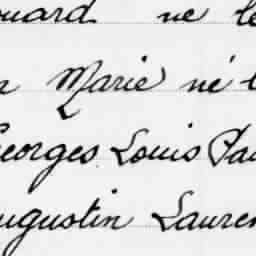 ouard né le
n Marie né l
Georges Louis Pau
ugustin Lauren